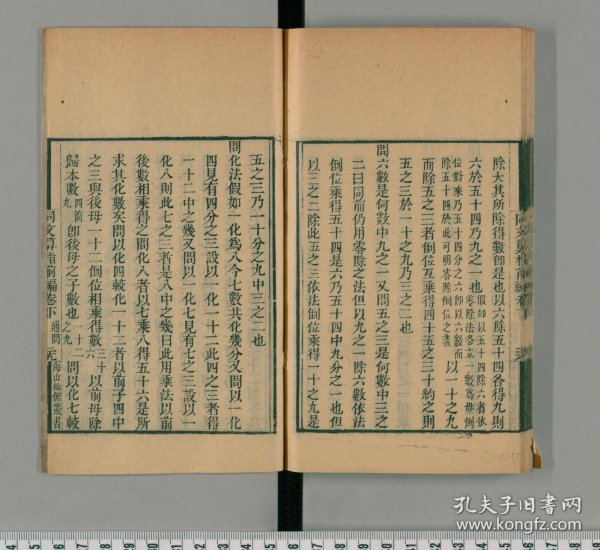 除大其所除得數卽是也以六除五十四各得九則
六於五十四乃九之一也假如以五十四除六者依零除法各立一數爲母倒
位對乘乃五十四分之六卽以六數而除五十四於此可明零除倒位之義以一十之九
而除五之三者倒位互乘得四十五之三十約之則
五之三於一十之九乃三之二也
問六數是何數中九之一又問五之三是何數中三之
二曰同前仍用零除之法但以九之一除六數依法
倒位乘得五十四是六乃五十四中九分之一也但
以三之二除此五之三依法倒位乘得一十之九是
五之三乃一十分之九中三之二也
問化法假如一化爲八今七數其化幾分又問以一化
四見有四分之三設以一化一十二此四之三者得
一十二中之幾又問以一化七見有七之三設以一
化八則此七之三者是八中之幾曰此用乘法以前
後數相乘得之問化八者以七乘八得五十六是所
求其化數矣問以化四較化一十二者以前子四中
之三與後母一十二倒位相乘得數三十六以前母除
歸本數九四而卽後母之子數也一十二之九問以化七較
同文算指前編卷下 通問 海山仙館叢書
孔夫子旧书网
www.kongfz.com